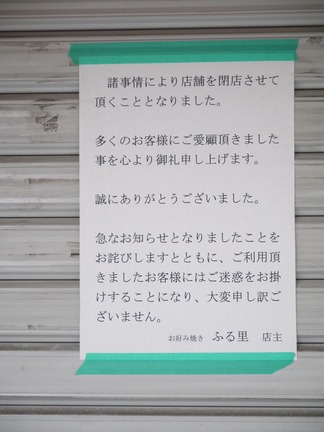 諸事情により店舗を閉店させて
頂くこととなりました。
多くのお客様にご愛顧頂きました
事を心より御礼申し上げます。
誠にありがとうございました。
急なお知らせとなりましたことを
お詫びしますとともに、ご利用頂
きましたお客様にはご迷惑をお掛
けすることになり、大変申し訳ご
ざいません。
お好み焼き ふる里 店主